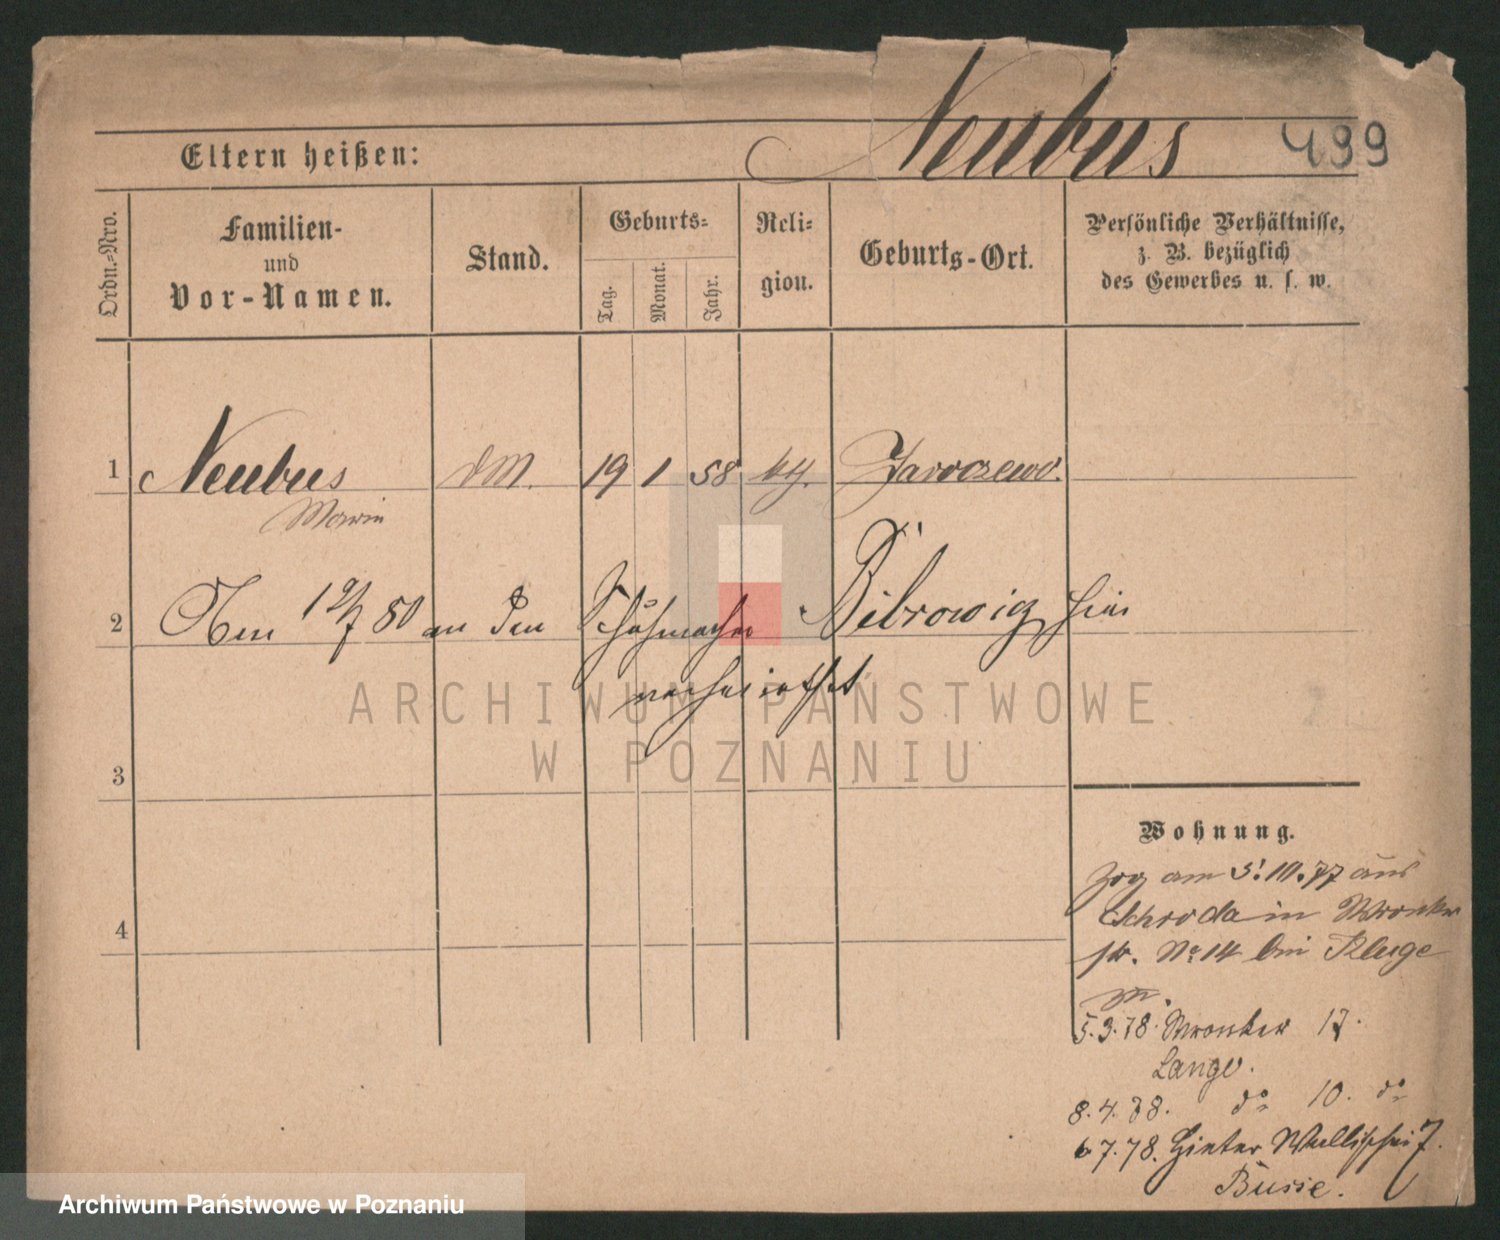 Neubus 499
Eltern heißen:
Ordn.-Nro.
Familien-
und
Vor-Namen.
Stand.
Geburts-
Tag.
Monat.
Jahr.
Reli-
gion.
Geburts-Ort.
Persönliche Verhältnisse,
z. B. bezüglich
des Gewerbes u. s. w.
1 Neubus DM. 19 1 58 kth. Jaroczewo.
Marie
2 Am 12/7 80 an den Schuhmacher Bibrowicz hier
verheirathet
ARCHIWUM PAŃSTWOWE
W POZNANIU
3
4
Wohnung.
Zog am 5.10.77 aus
Schroda in Wronker
str. No 14 bei Kluge
5.3.78. Wronker 17.
Lange.
8.4.78. do 10. do
6 7.78. Hinter Wallischei 7.
Busse.
Archiwum Państwowe w Poznaniu